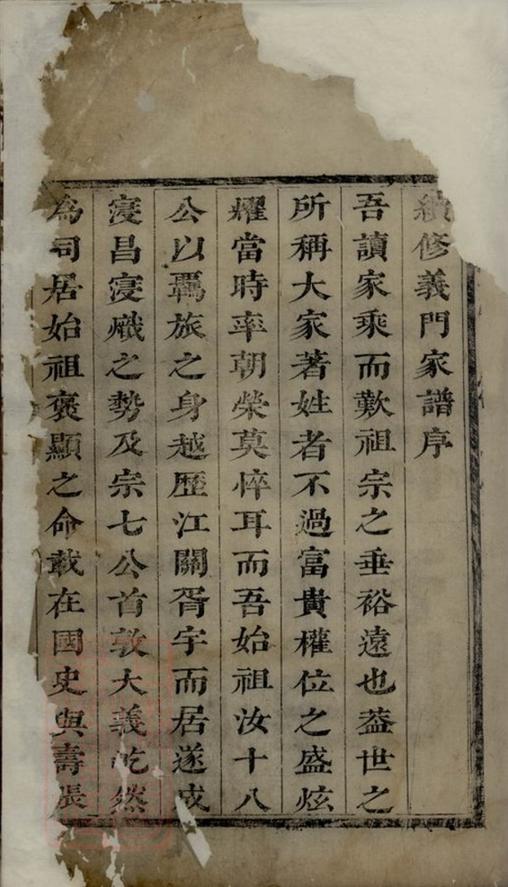 續修義門家譜序
吾讀家乘而歎祖宗之垂裕遠也葢世之
所稱大家著姓者不過富貴權位之盛炫
耀當時率朝榮莫悴耳而吾始祖汝十八
公以羈旅之身越歷江關胥宇而居遂成
寖昌寖熾之勢及宗七公首敦大義屹然
為同居始祖褒顯之命載在國史與壽張